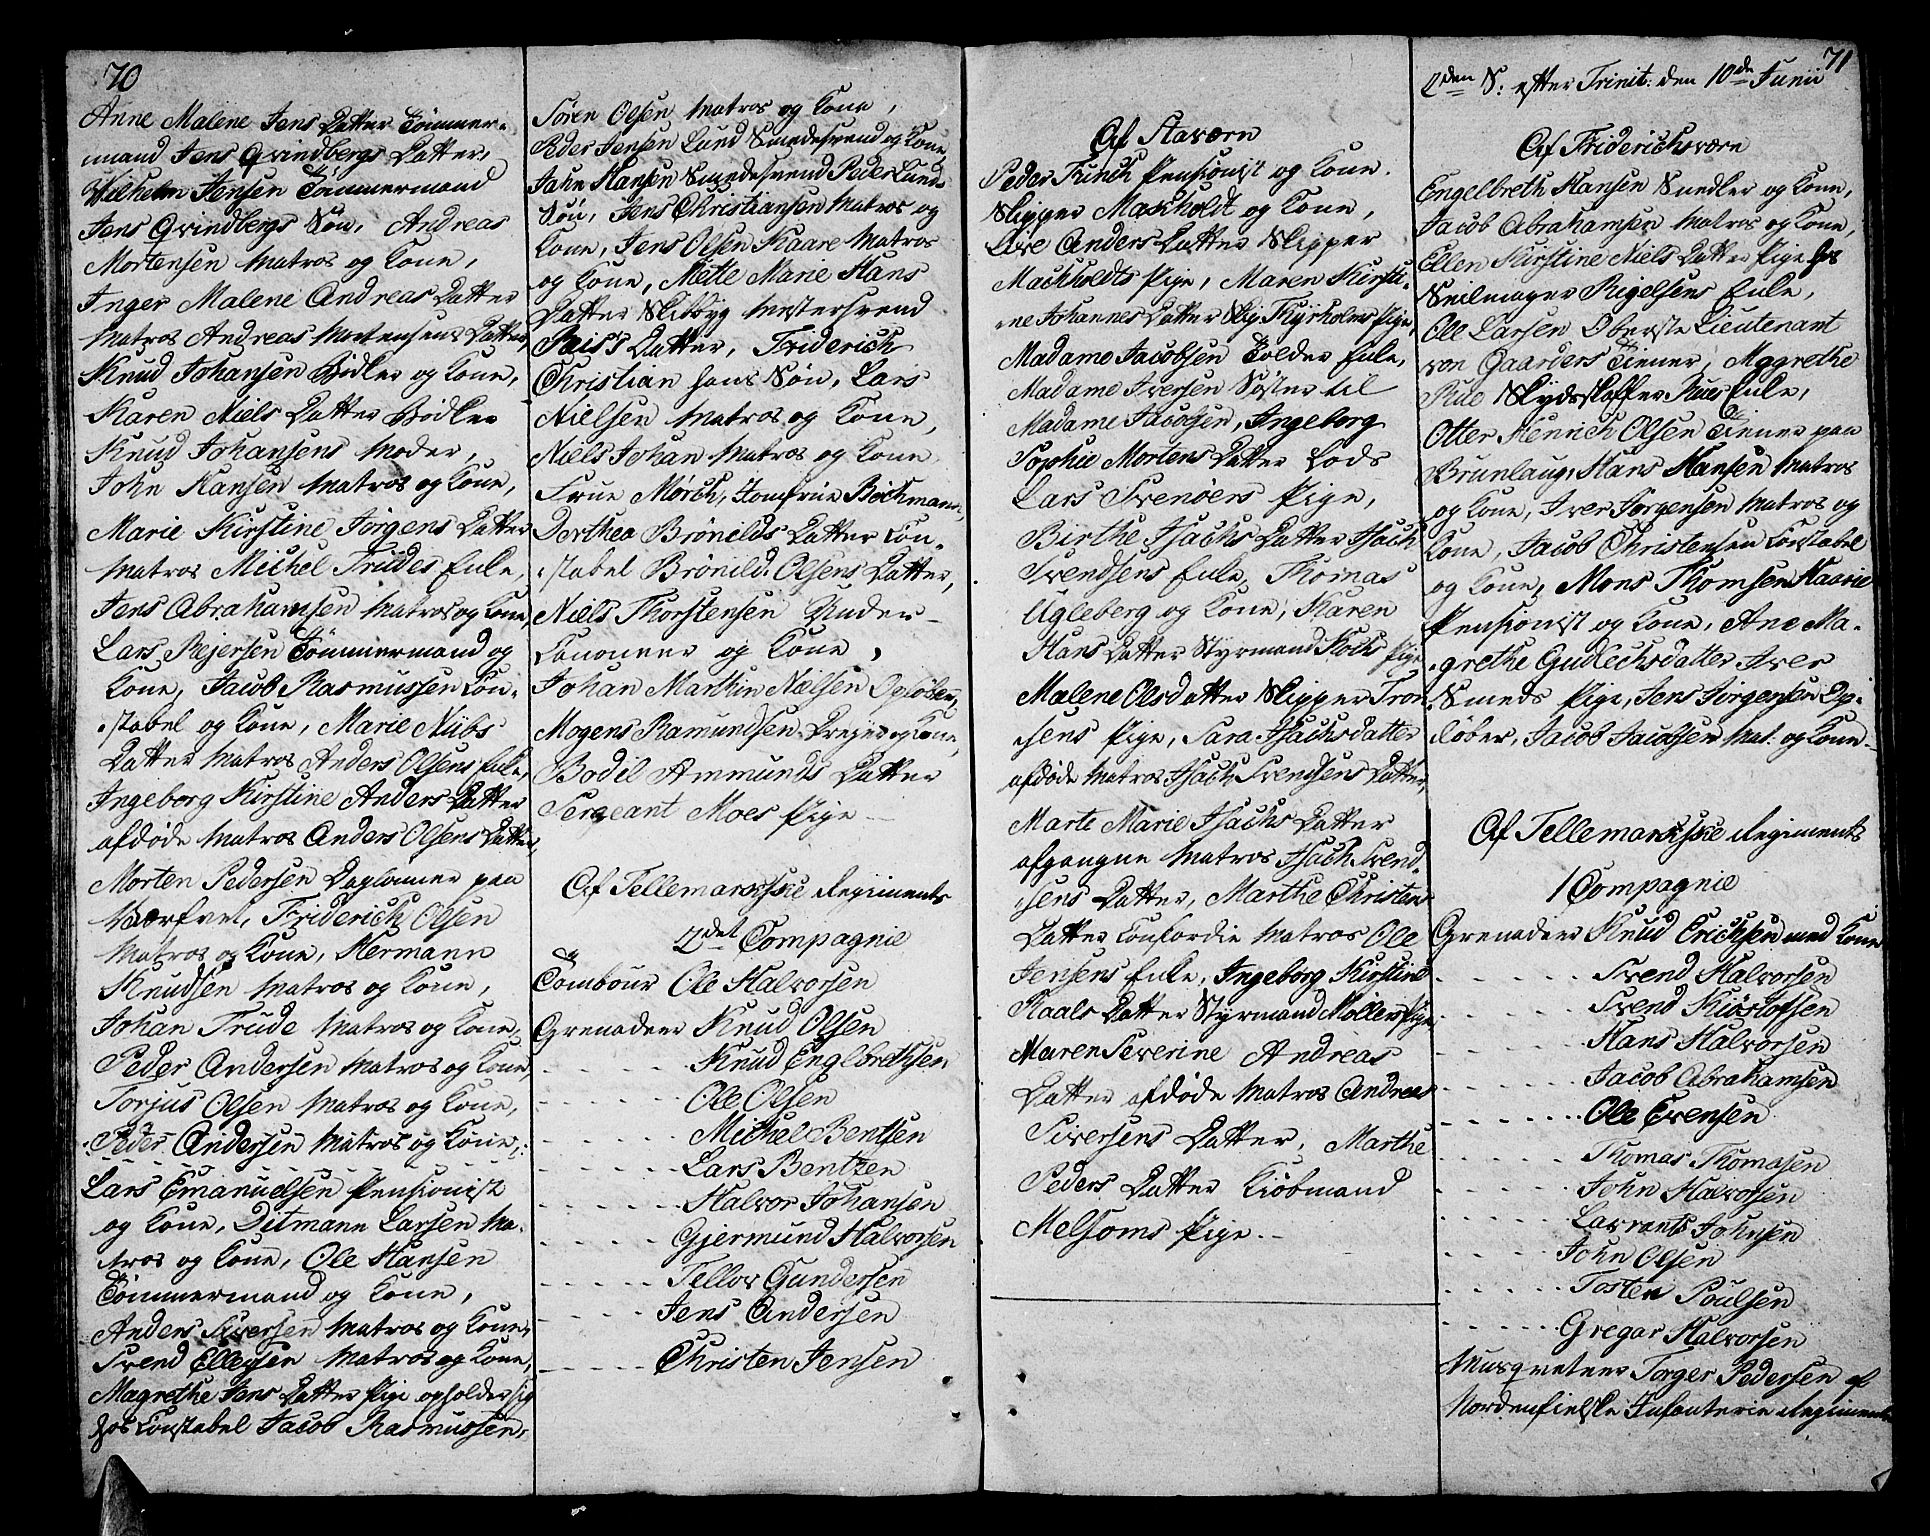 70
Anne Malene Jens Datter Tømmer-
mand Jens Qvindbergs Datter,
Wilhelm Jensen Tømmermand
Jens Qvindbergs Søn, Andreas
Mortensen Matros og Kone,
Inger Malene Andreas Datter
Matros Andreas Mortensens Datter,
Knud Johansen Bødker og Kone,
Karen Niels Datter Bødker
Knud Johansens Moder,
John Hansen Matros og Kone,
Marie Kirstine Jørgens Datter
Matros Michel Trudes Enke,
Jens Abrahamsen Matros og Kone,
Lars Rejersen Tømmermand og
Kone, Jacob Rasmussen Con-
stabel og Kone, Marie Niels
Datter Matros Anders Olsens Enke,
Ingeborg Kirstine Anders Datter
afdøde Matros Anders Olsens Datter,
Morten Pedersen Daglønner paa
Værfvet, Friderich Olsen
Matros og Kone, Hermann
Knudsen Matros og Kone,
Johan Trude Matros og Kone,
Peder Andersen Matros og Kone,
Torjus Olsen Matros og Kone,
Peder Andersen Matros og Kone,
Lars Emanuelsen Pensionist
og Kone, Ditmann Larsen Ma-
tros og Kone, Ole Hansen
Tømmermand og Kone,
Anders Siversen Matros og Kone,
Svend Ellevsen Matros og Kone,
Magrethe Jens Datter Pige opholder sig
hos Constabel Jacob Rasmussen,
Søren Olsen Matros og Kone,
Peder Jensen Lund Smedesvend og Kone,
John Hansen Smedesvend Peder Lunds
Søn, Jens Christiansen Matros og
Kone, Jens Olsen Kaare Matros
og Kone, Mette Marie Hans
Datter Skibbyg Mestersvend
Rais's Datter, Friderich
Christian hans Søn, Lars
Nielsen Matros og Kone,
Niels Johan Matros og Kone
Frue Mørch, Jomfrue Bochmann,
Dorthea Brønilds Datter Con-
stabel Brønild Olsens Datter,
Niels Thorstensen Under-
Canoneer og Kone,
Johan Marthin Nielsen Opløber,
Mogens Ramundsen Drejer og Kone,
Bodil Ammunds Datter
Sergeant Moes Pige
Af Tellemarkske Regiments
2det Compagnie
Tambour Ole Halvorsen
Grenadeer Knud Olsen
- - - - - Knud Englbrethsen
- - - - - Ole Olsen
- - - - - Michel Bentsen
- - - - - Lars Bentzen
- - - - - Halvor Johansen
- - - - - Gjermund Halvorsen
- - - - - Tellov Gundersen
- - - - Jens Andersen
- - - - Christen Jensen
Af Staværn
Peder Funch Pensionist og Kone.
Skipper Machholdt og Kone,
Live Anders Datter Skipper
Machholdts Pige, Maren Kirsti-
ne Johannes Datter Skip Thyrholms Pige,
Madame Jacobsen Tolder Enke,
Madame Iversen Søster til
Madame Jacobsen, Ingeborg
Sophie Mortens Datter Lods
Lars Svenøers Pige,
Birthe Isachs Datter Isach
Svendsens Enke, Thomas
Ugleberg og Kone, Karen
Hans Datter Styrmand Kochs Pige
Malene Olsdatter Skipper Tron-
sens Pige, Sara Isachsdatter
afdøde Matros Isach Svendsens Datter,
Marte Marie Isachs Datter
afgangne Matros Isach Svend-
sens Datter, Marthe Christens
Datter Confordie Matros Ole
Jensens Enke, Ingeborg Kirstine
Roals Datter Styrmand Mollers Pige,
Maren Severine Andreas
Datter afdøde Matros Andreas
Siversens Datter, Marthe
Peders Datter Kiøbmand
Melsoms Pige.
71
2den S: efter Trinit: den 10de Junii
Af Friderichsværn
Engelbreth Hansen Snedker og Kone,
Jacob Abrahamsen Matros og Kone,
Ellen Kirstine Niels Datter Pige hos
Seilmager Rigelsens Enke,
Ole Larsen Oberste Lieutenant
von Gaarders Tiener, Maggrethe
Rue Skydskaffer Rues Enke,
Otter Henrich Olsen Tiener paa
Brunlaug, Hans Hansen Matros
og Kone, Iver Jørgensen Matros og
Kone, Jacob Christensen Constabel
og Kone, Mons Thomsen Kaarie
Pensionist og Kone, Ane Ma-
grethe Gudlechsdatter Iver
Smeds Pige, Jens Jørgensen Op-
løber, Jacob Jacobsen Mat: og Kone
Af Tellemarkske Regiments
1 Compagnie
Grenadeer Knud Erichsen med Kone
- - - - - Svend Halvorsen
- - - - - Svend Kiøstofsen
- - - - - Hans Halvorsen
- - - - - Jacob Abrahamsen
- - - - - Ole Evensen
- - - - - Thomas Thomasen
- - - - - John Halvorsen
- - - - - Lavrants Johnsen
- - - - - John Olsen
- - - - - Tosten Poulsen
- - - - - Gregar Halvorsen
Musqveteer Torger Pedersen af
Nordenfielske Infanterie Regiment